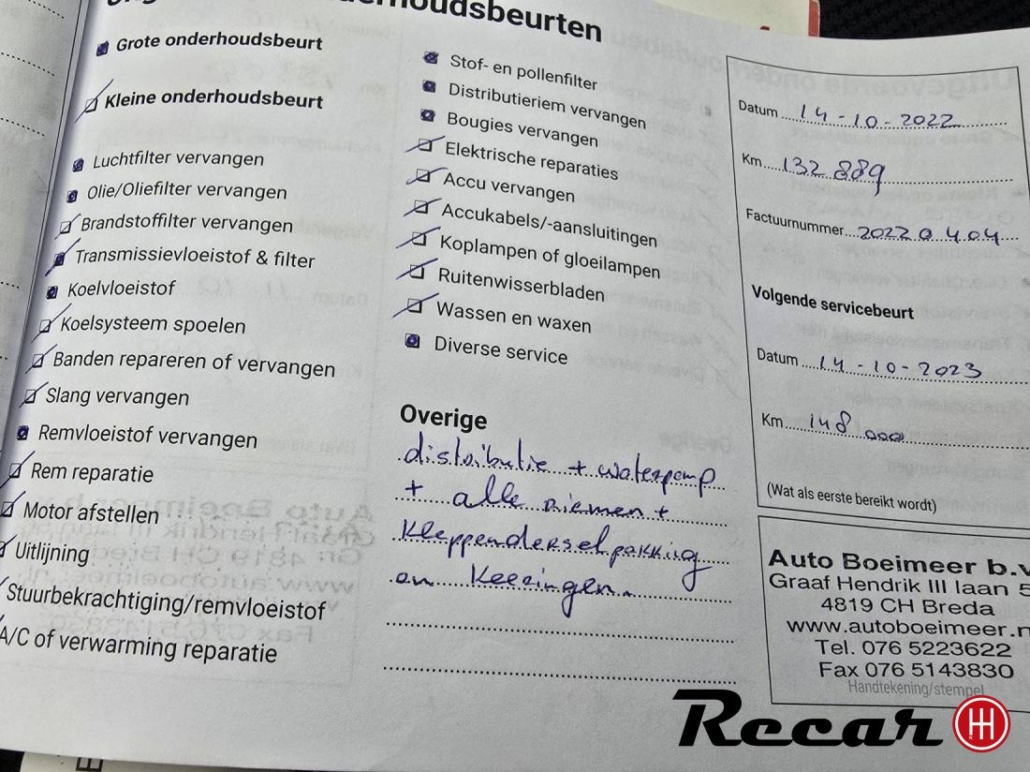 onderhoudsbeurten
Grote onderhoudsbeurt
Kleine onderhoudsbeurt
Luchtfilter vervangen
Olie/Oliefilter vervangen
Brandstoffilter vervangen
Transmissievloeistof & filter
Koelvloeistof
Koelsysteem spoelen
Banden repareren of vervangen
Slang vervangen
Remvloeistof vervangen
Rem reparatie
Motor afstellen
Uitlijning
Stuurbekrachtiging/remvloeistof
A/C of verwarming reparatie
Stof- en pollenfilter
Distributieriem vervangen
Bougies vervangen
Elektrische reparaties
Accu vervangen
Accukabels/-aansluitingen
Koplampen of gloeilampen
Ruitenwisserbladen
Wassen en waxen
Diverse service
Overige
distributie + waterpomp
+ alle riemen +
Kleppendekselpakking
en Keeringen.
Datum 14-10-2022
Km 132 889
Factuurnummer 20220404
Volgende servicebeurt
Datum 14-10-2023
Km 148 000
(Wat als eerste bereikt wordt)
Auto Boeimeer b.v
Graaf Hendrik III laan 5
4819 CH Breda
www.autoboeimeer.n
Tel. 076 5223622
Fax 076 5143830
Handtekening/stempel
Recar